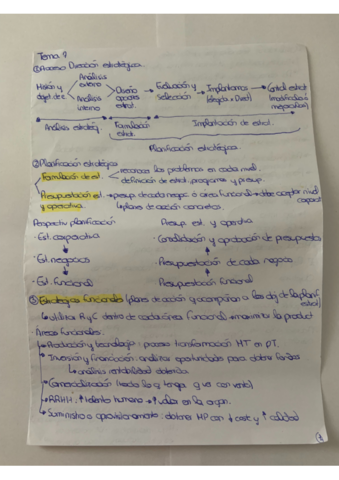 Tema 9
① Proceso Dirección estratégica.
Misión y objet. de e. → Análisis externo / Análisis interno → Diseño opciones estrat. → Evaluación y Selección → Implantamos → Control estrat
Análisis estratég. Formulación estrat. Implantación de estrat.
Planificación estratégica.
② Planificación estratégica
Formulación de est. → reconocer los problemas en cada nivel.
definición de estrat, programas y presup.
Presupuestación est. y operativa. → presup. de cada negoc. o área funcional → debe aceptar nivel
↳ planes de acción concretos.
Perspectiv planificación Presup. est. y operativa
- Est. corporativa - Consolidación y aprobación de presupuestos
- Est. negocios - Presupuestación de cada negocio
- Est. funcional - Presupuestación funcional
③ Estrategias funcionales (planes de acción q acompañan a los obj de la planif. estrat)
↳ Utiliza R y C dentro de cada área funcional → maximiza la product
- Áreas funcionales:
Producción y tecnología: proceso transformación MP en PT.
Inversión y financiación: analiza oportunidades para obtener fondos
↳ análisis rentabilidad obtenida
Comercialización (todo lo q tenga q ver con venta)
RRHH: ↑ talento humano → ↑ valor en la organ.
Suministro o aprovisionamiento: obtener MP con ↓ coste y ↑ calidad